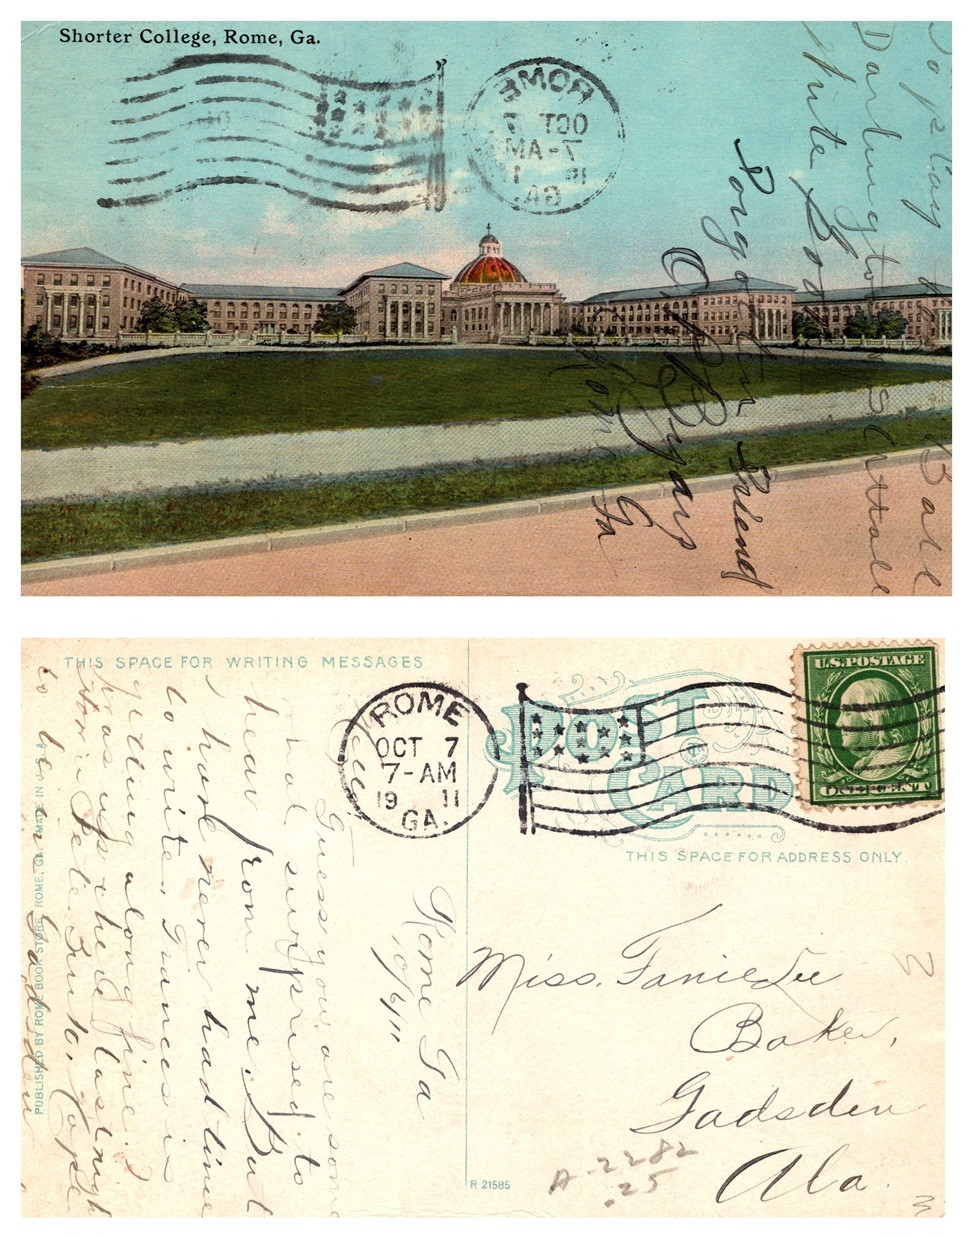 Shorter College, Rome, Ga.
ROME
OCT 7
7-AM
1911
GA.
to play Ball
Darlington School
Write Soon
Your Friend
C P Byars
Rome Ga
THIS SPACE FOR WRITING MESSAGES
ROME
OCT 7
7-AM
19 11
GA.
POST CARD
U.S. POSTAGE
ONE CENT
THIS SPACE FOR ADDRESS ONLY.
Rome Ga
10/6/11
Guess you are some
what surprised to
hear from me. But
I have never had time
to write. Frances is
getting along fine. I
was up there last night
from Pete Smith. hope
to be in Gadsden
Miss. Fanie Lee
Baker,
Gadsden
Ala.
A-2282
.25
R-21585
PUBLISHED BY ROME BOOK STORE, ROME, GA. MADE IN U.S.A.